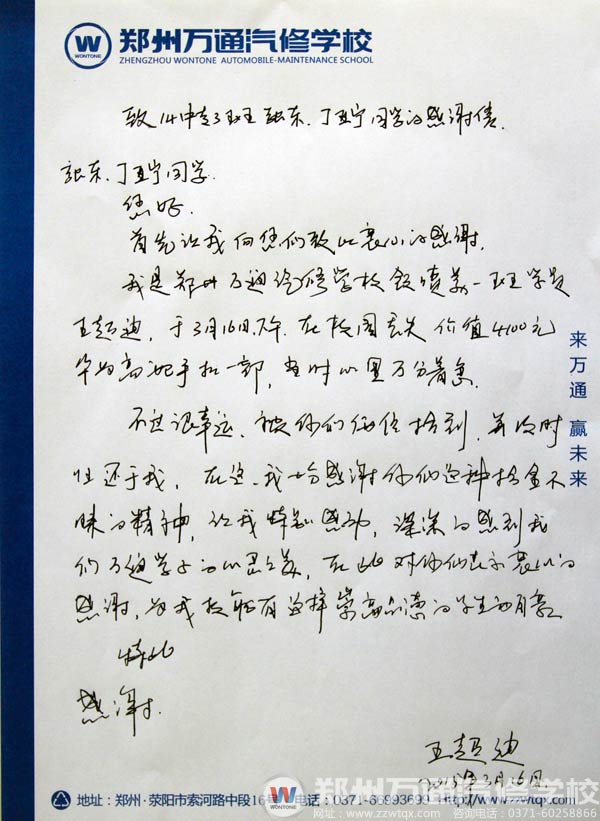 郑州万通汽修学校
WONTONE
ZHENGZHOU WONTONE AUTOMOBILE-MAINTENANCE SCHOOL
致14中专3班张东、丁亚宁同学的感谢信
张东、丁亚宁同学.
您好.
首先让我向您们致以衷心的感谢.
我是郑州万通汽修学校 一班学员
王超迪, 于3月16日下午 在校园丢失 价值4100元
华为高配手机一部, 当时心里万分着急.
不过很幸运, 被你们俩位拾到, 并及时
归还于我, 在这, 我十分感谢你们这种拾金不
昧的精神, 让我特别感动, 深深的感到我
们万通学子的心灵之美, 在此对你们表示衷心的
感谢, 为我校能有这样崇高品德的学生而自豪
特此
感谢.
王超迪
来万通 赢未来
地址：郑州·荥阳市索河路中段16号 电话：0371-66993699 Http://www.zzwtqx.com
WONTONE
郑州万通汽修学校
网址：www.zzwtqx.com 咨询电话：0371-60258866